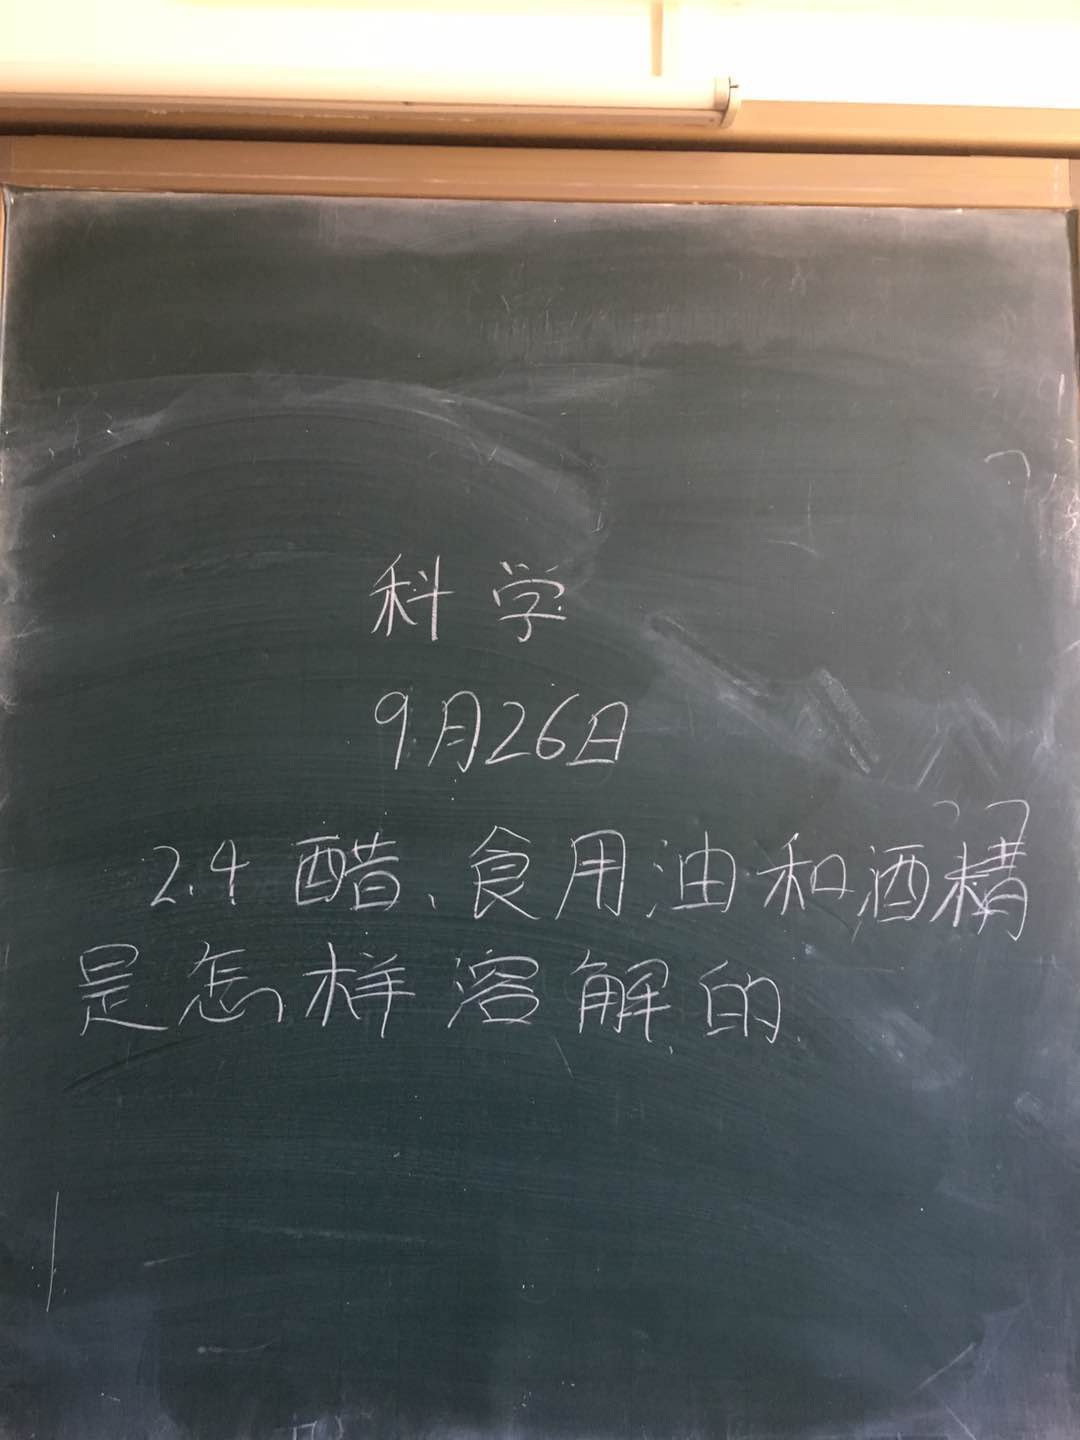 科学
9月26日
2.4 醋、食用油和酒精
是怎样溶解的